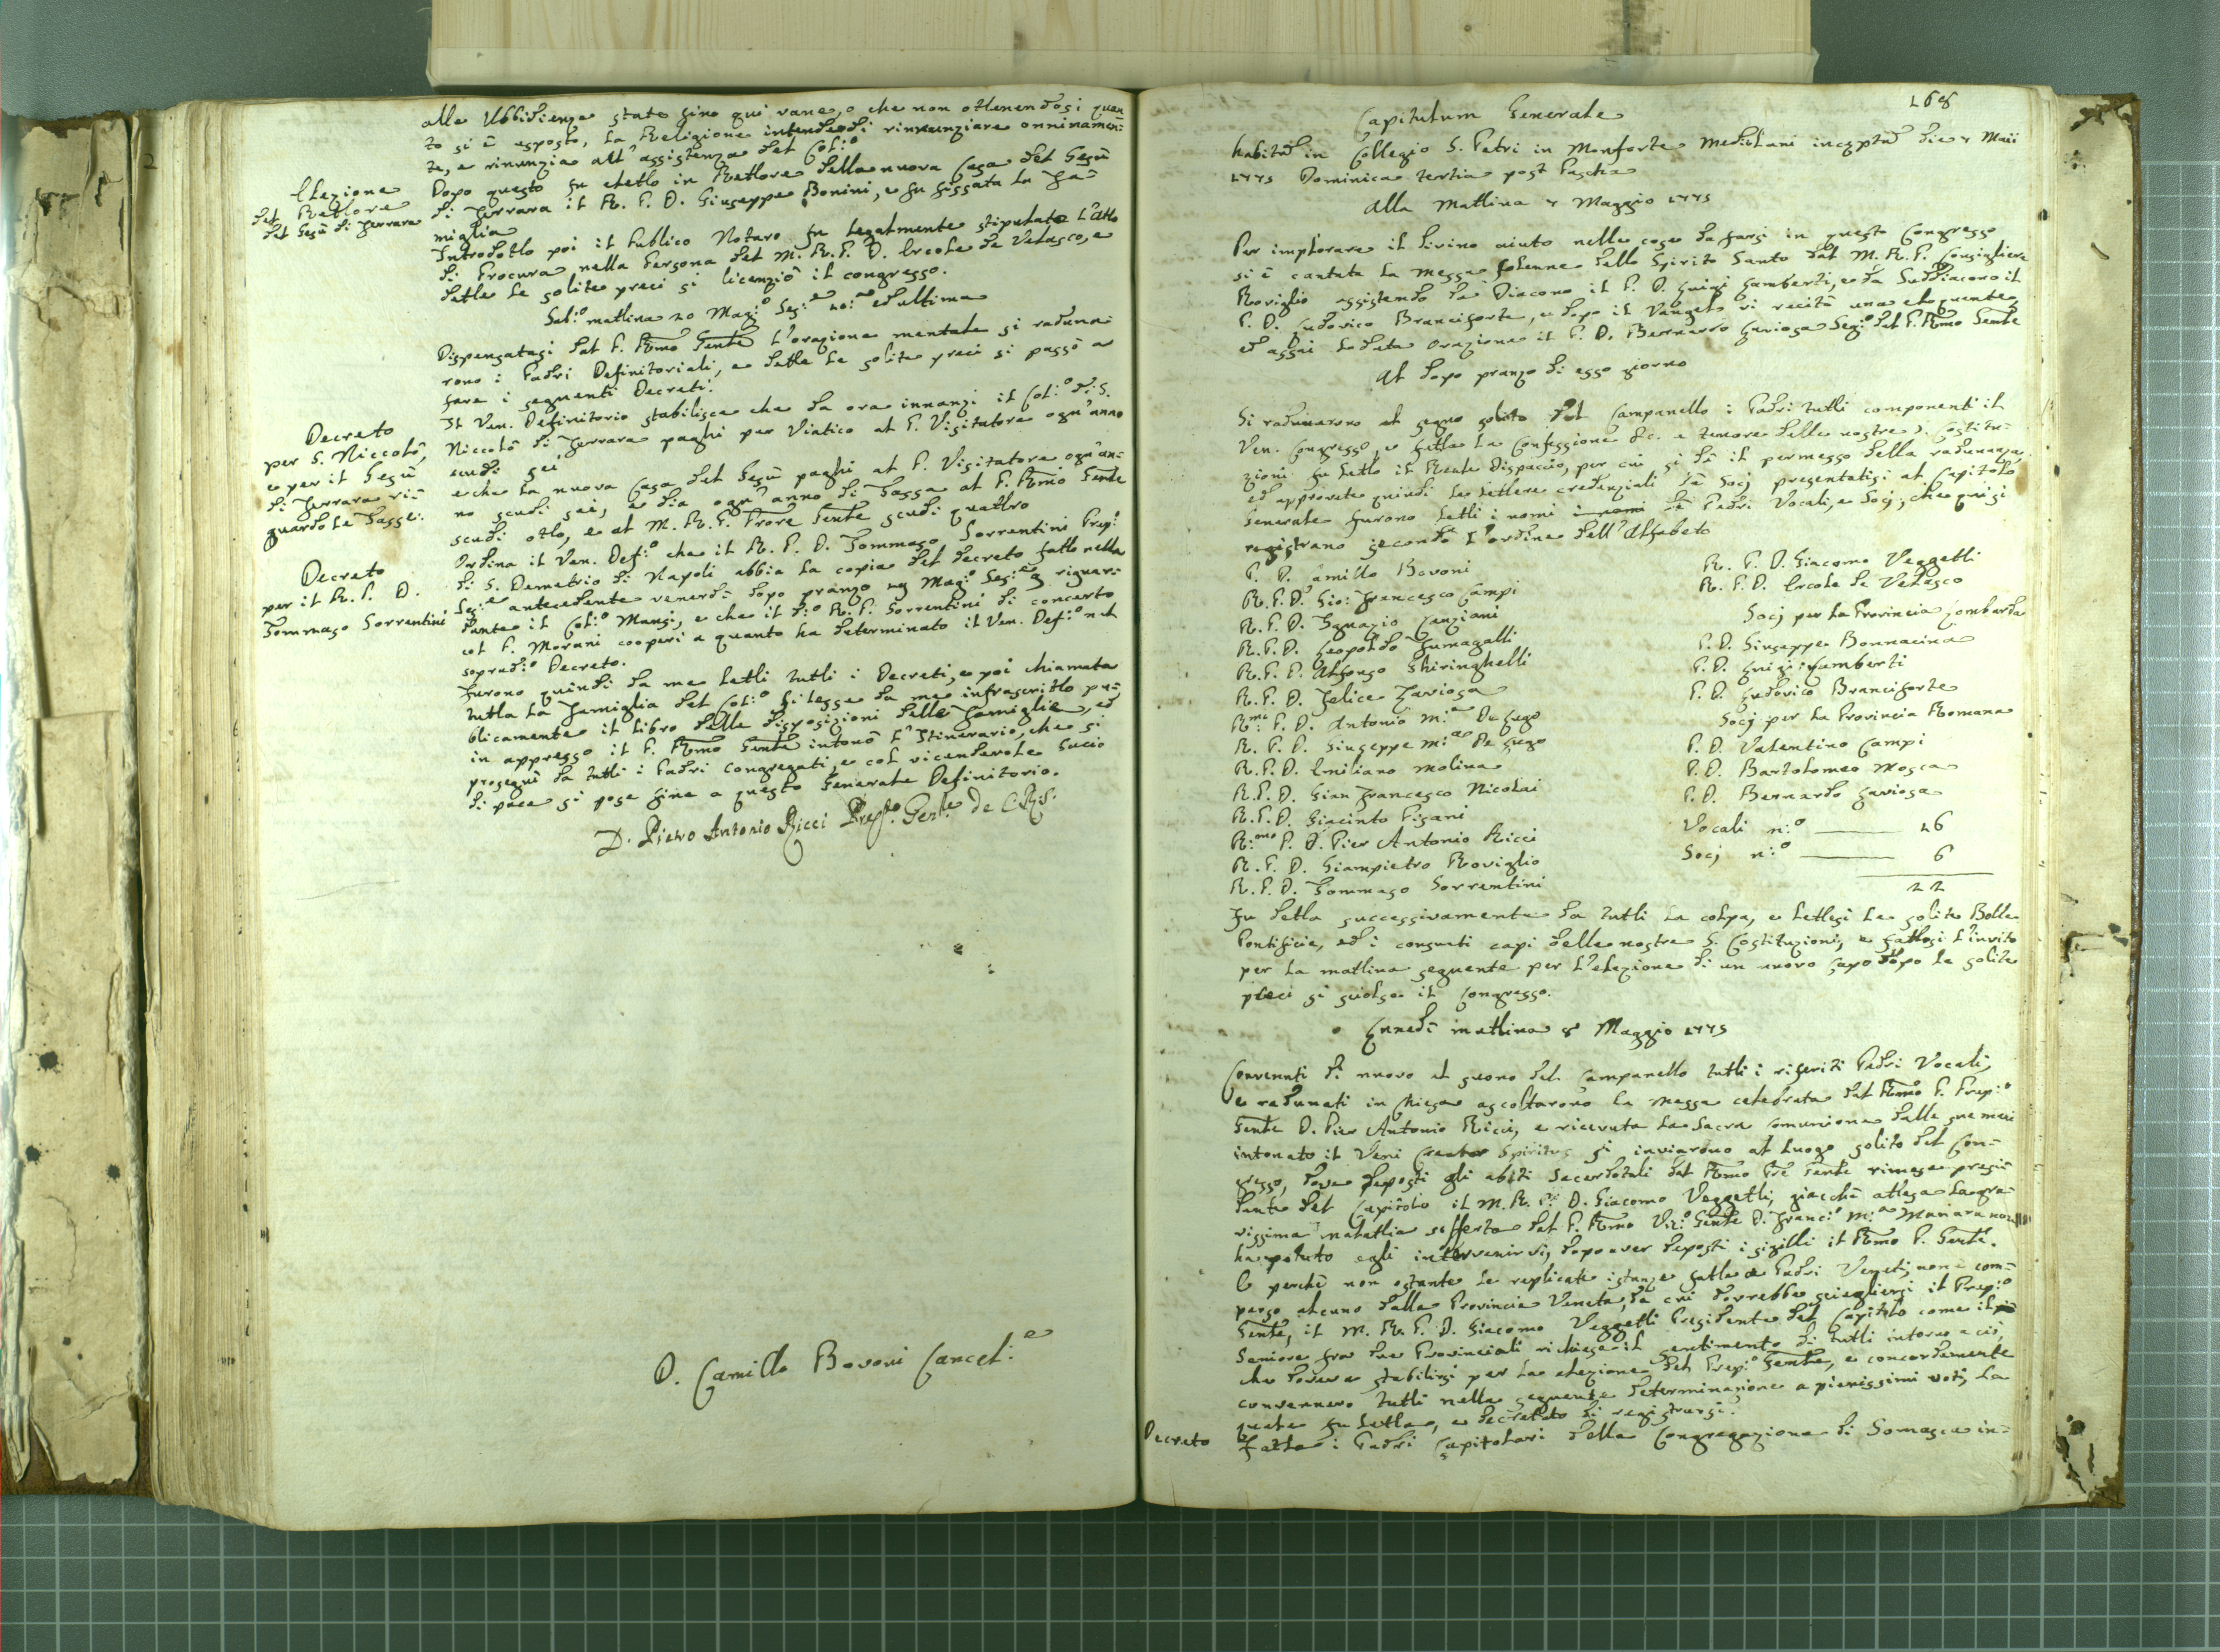 alle Ubbidienze state sino qui vane, e che non ottenendosi quan
to si è esposto, la Religione intende di rinnunziare onninamen:
te, e rinunzia all'assistenza del Col:o
Elezione
del Rettore
del Gesù di Ferrara
Dopo questo fu eletto in Rettore della nuova Casa del Gesù
di Ferrara il R. P. D. Giuseppe Bonini, e fu fissata la Fa=
miglia
Introdotto poi il Publico Notaro fu legalmente stipulato l'Atto
di Procura nella Persona del M. R. P. D. Ercole de Velasco, e
dette le solite preci si licenziò il congresso.
Sab:o mattina 20 Mag:o Sess:e 20:a ed ultima
Dispensatasi dal P. Rmo Gente l'orazione mentale si raduna:
rono i Padri Definitoriali, e dette le solite preci si passò a
fare i seguenti Decreti.
Decreto
per S. Niccolò,
e per il Gesù
di Ferrara ri=
guardo le Tasse.
Il Ven. Definitorio stabilisce che da ora innanzi il Col:o di S.
Niccolò di Ferrara paghi per Viatico al P. Visitatore ogn'anno
scudi sei
e che la nuova Casa del Gesù paghi al P. Visitatore ogn'an:
no scudi sei, e dia ogn'anno di Tassa al P. Rmo Gente
scudi otto, e al M. R. P. Prore Gente scudi quattro
Decreto
per il R. P. D.
Tommaso Sorrentini
Ordina il Ven. Def:o che il R. P. D. Tommaso Sorrentini Prep:o
di S. Demetrio di Napoli abbia la copia del Decreto fatto nella
Sess:e antecedente venerdì dopo pranzo 19 Mag:o Sess:e riguar:
dante il Col:o Mansi, e che il d:o R. P. Sorrentini di concerto
col P. Morani cooperi a quanto ha determinato il Ven. Def:o nel
sopradº Decreto.
Furono quindi da me letti tutti i Decreti, e poi chiamata
tutta la Famiglia del Col:o si lesse da me infrascritto pu=
blicamente il libro delle disposizioni delle Famiglie, ed
in appresso il P. Rmo Gente intonò l'Itinerario, che si
proseguì da tutti i Padri congregati, e col vicendevole bacio
di pace si pose fine a questo Generale Definitorio.
D. Pietro Antonio Ricci Prep.to Gen.le de C.R.S.
D. Camillo Bovoni Cancel:e
168
Capitulum Generale
habitum in Collegio S. Petri in Monforte Mediolani inceptum die 7 Maii
1775 Dominica tertia post Pascha
Alla Mattina 7 Maggio 1775
Per implorare il divino aiuto nelle cose da farsi in questo Congresso
si è cantata la messa solenne dello Spirito Santo dal M. R. P. Consigliere
Roviglio assistendo da Diacono il P. D. Luigi Lamberti, e da Suddiacono il
P. D. Ludovico Branciforte, e dopo il Vangelo vi recitò una eloquente,
ed assai lodata orazione il P. D. Bernardo Laviosa Seg:o del P. Rmo Gente
Al dopo pranzo di esso giorno
Si radunarono al segno solito del Campanello i Padri tutti componenti il
Ven. Congresso, e fatta la Confessione &c. a tenore delle nostre S. Costitu=
zioni fu letto il Reale Dispaccio, per cui si dà il permesso della radunanza,
ed approvate quindi le lettere credenziali de Socj presentatisi al Capitolo
Generale furono letti i nomi i nomi de Padri Vocali, e Socj, che qui si
registrano secondo l'ordine dell'Alfabeto
P. D. Camillo Bovoni
R. P. D. Gio: Francesco Campi
R. P. D. Ignazio Canziani
R. P. D. Leopoldo Fumagalli
R. P. D. Alfonso Ghiringhelli
R. P. D. Felice Laviosa
R:mo P. D. Antonio M:a De Lugo
R. P. D. Giuseppe M:a De Lugo
R. P. D. Emiliano Molina
R. P. D. Gian Francesco Nicolai
R. P. D. Giacinto Pisani
R:mo P. D. Pier Antonio Ricci
R. P. D. Giampietro Roviglio
R. P. D. Tommaso Sorrentini
R. P. D. Giacomo Veggetti
R. P. D. Ercole de Velasco
Socj per la Provincia Lombarda
P. D. Giuseppe Bonnacina
P. D. Luigi Lamberti
P. D. Ludovico Branciforte
Socj per la Provincia Romana
P. D. Valentino Campi
P. D. Bartolomeo Mosca
P. D. Bernardo Laviosa
Vocali n:o 16
Socj n:o 6
22
Fu detta successivamente da tutti la colpa, e lettesi le solite Bolle
Pontificie, ed i consueti capi delle nostre S. Costituzioni, e fattosi l'invito
per la mattina seguente per l'elezione di un nuovo Capo dopo le solite
preci si sciolse il Congresso.
Lunedì mattina 8 Maggio 1775
Convenuti di nuovo al suono del Campanello tutti i riferiti Padri Vocali,
e radunati in Chiesa ascoltarono la Messa celebrata dal Rmo P. Prep:o
Gente D. Pier Antonio Ricci, e ricevuta la Sacra Comunione dalle sue mani
intonato il Veni Creator Spiritus si inviarono al luogo solito del Con=
gresso, dove deposti gli abiti Sacerdotali dal Rmo Pre Gente rimase presi=
dente del Capitolo il M. R. P. D. Giacomo Veggetti, giacchè attesa la gra=
vissima malattia sofferta dal P. Rmo Vic:o Gente D. Franc:o M:a Manara non
ha potuto egli intervenirvi, dopo aver deposti i sigilli il Rmo P. Gente.
E perchè non ostante le replicate istanze fatte a Padri Veneti, non è com=
parso alcuno dalla Provincia Veneta, da cui dovrebbe sciegliersi il Prep:o
Gente, il M. R. P. D. Giacomo Veggetti Presidente del Capitolo come il
Seniore fra due Provinciali richiese il sentimento di tutti intorno a ciò,
che doveva stabilirsi per la elezione del Prep:o Gente, e concordemente
convennero tutti nella seguente determinazione a pienissimi voti, la
quale fu letta, e decretato di registrarsi.
Decreto
Fatta i Padri Capitolari della Congregazione di Somasca in=